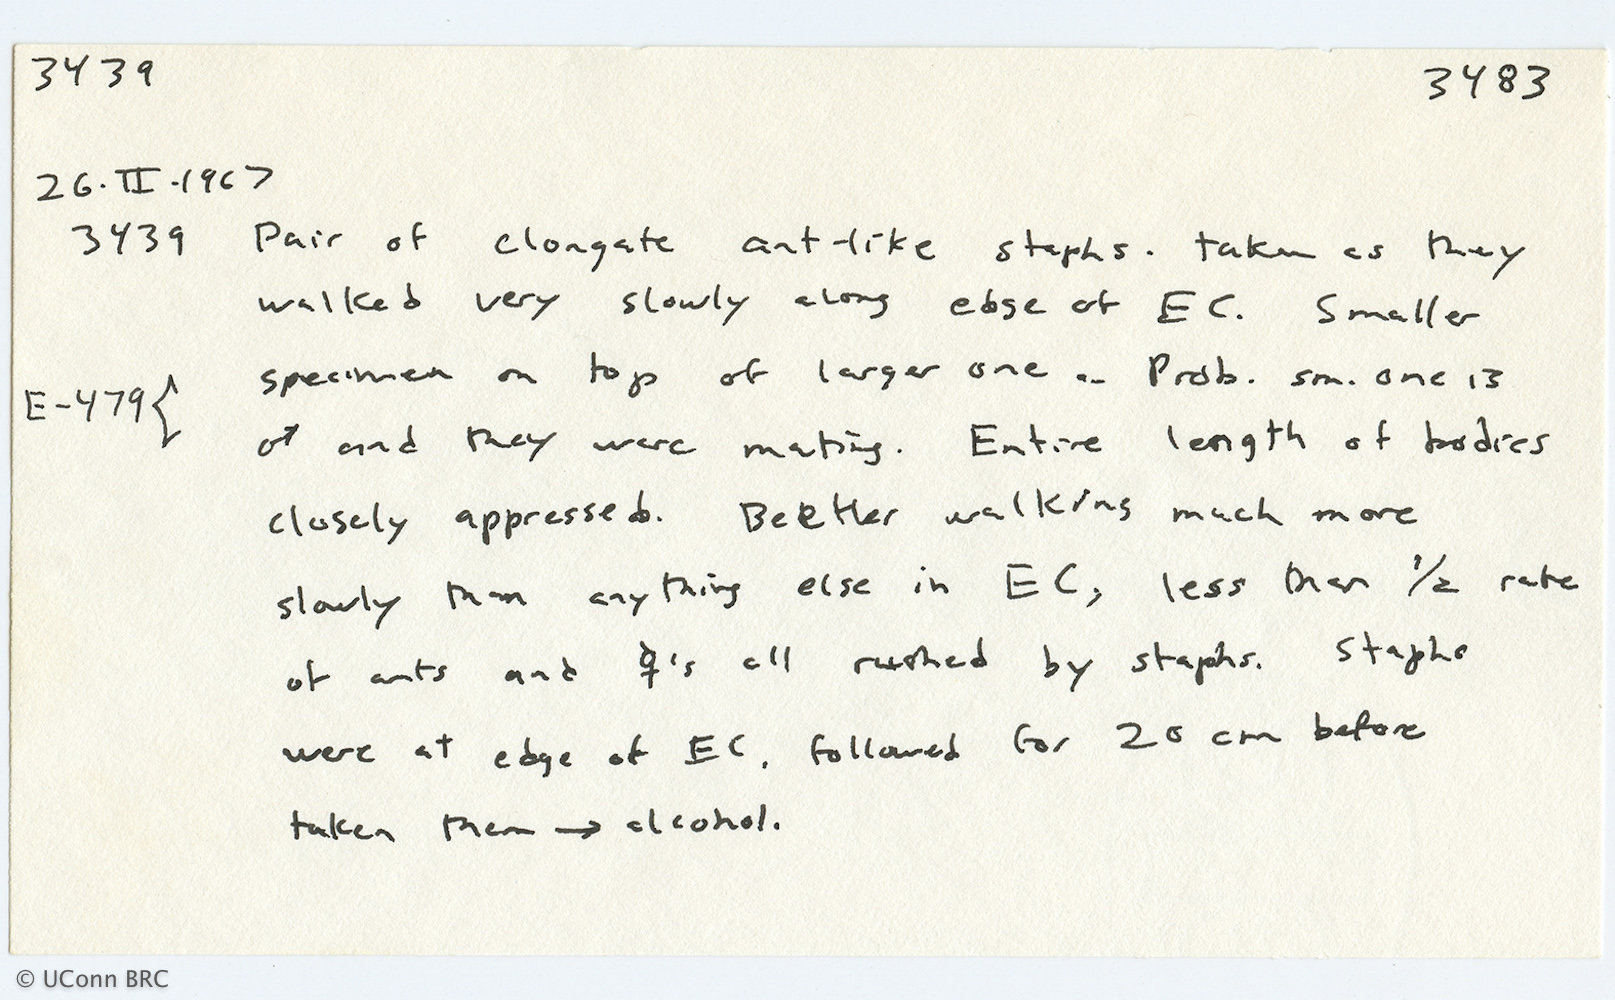 3439 3483
26.II.1967
3439 Pair of elongate ant-like staphs. taken as they
walked very slowly along edge of EC. Smaller
specimen on top of larger one -- Prob. sm. one is
E-479{ ♂ and they were mating. Entire length of bodies
closely appressed. Beetler walking much more
slowly than anything else in EC, less than 1/2 rate
of ants and 's all rushed by staphs. Staphs
were at edge of EC, followed for 20 cm before
taken them → alcohol.
© UConn BRC